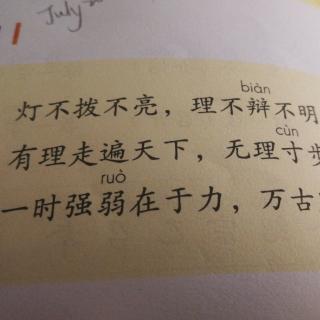 July
biàn
灯不拨不亮，理不辩不明
cùn
有理走遍天下，无理寸步
ruò
一时强弱在于力，万古